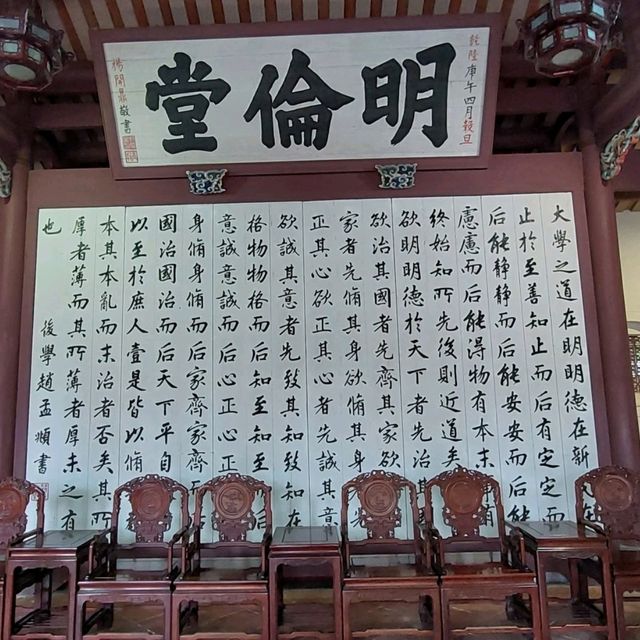 乾隆庚午四月穀旦
明倫堂
楊開鼎敬書
大學之道在明明德在新
止於至善知止而后有定定而
后能静静而后能安安而后能
慮慮而后能淂物有本末
終始知所先後則近道矣
欲明明德於天下者先治其
欲治其國者先齊其家欲
家者先脩其身欲脩其身
正其心欲正其心者先誠其意
欲誠其意者先致其知致知在
格物物格而后知至知至
意誠意誠而后心正心正
身脩身脩而后家齊家齊而
國治國治而后天下平自
以至於庶人壹是皆以脩
本其本亂而末治者否矣其所
厚者薄而其所薄者厚未之有
也
後學趙孟頫書